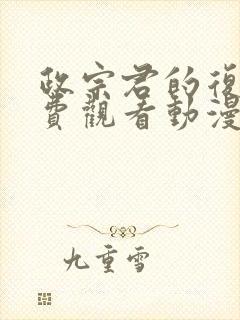 政宗君的復
費觀看動漫
九重雪